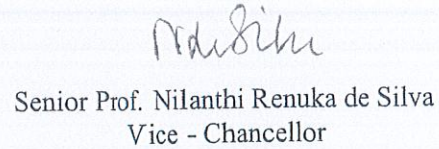 NdeSilva
Senior Prof. Nilanthi Renuka de Silva
Vice - Chancellor